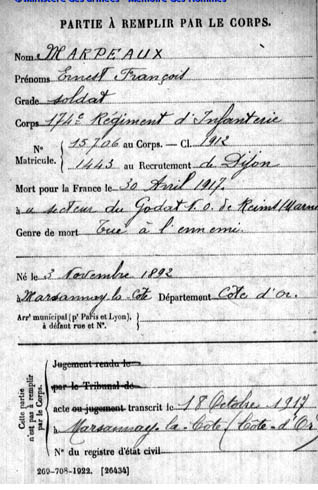 © Ministère des armées - Mémoire des Hommes
PARTIE À REMPLIR PAR LE CORPS.
Nom MARPEAUX
Prénoms Ernest François
Grade soldat
Corps 174e Régiment d'Infanterie
N° Matricule. { 15706 au Corps. — Cl. 1912
1443 au Recrutement de Dijon
Mort pour la France le 30 Avril 1917.
à u secteur du Godat N.O. de Reims (Marne
Genre de mort Tué à l'ennemi.
Né le 3 Novembre 1892
à Marsannay la Côte Département Côte d'Or.
Arrt municipal (pr Paris et Lyon), à défaut rue et N°. {
Cette partie n'est pas à remplir par le Corps.
Jugement rendu le
par le Tribunal de
acte ou jugement transcrit le 18 Octobre 1917
à Marsannay-la-Côte (Côte d'Or)
N° du registre d'état civil
269-708-1922. [26434]